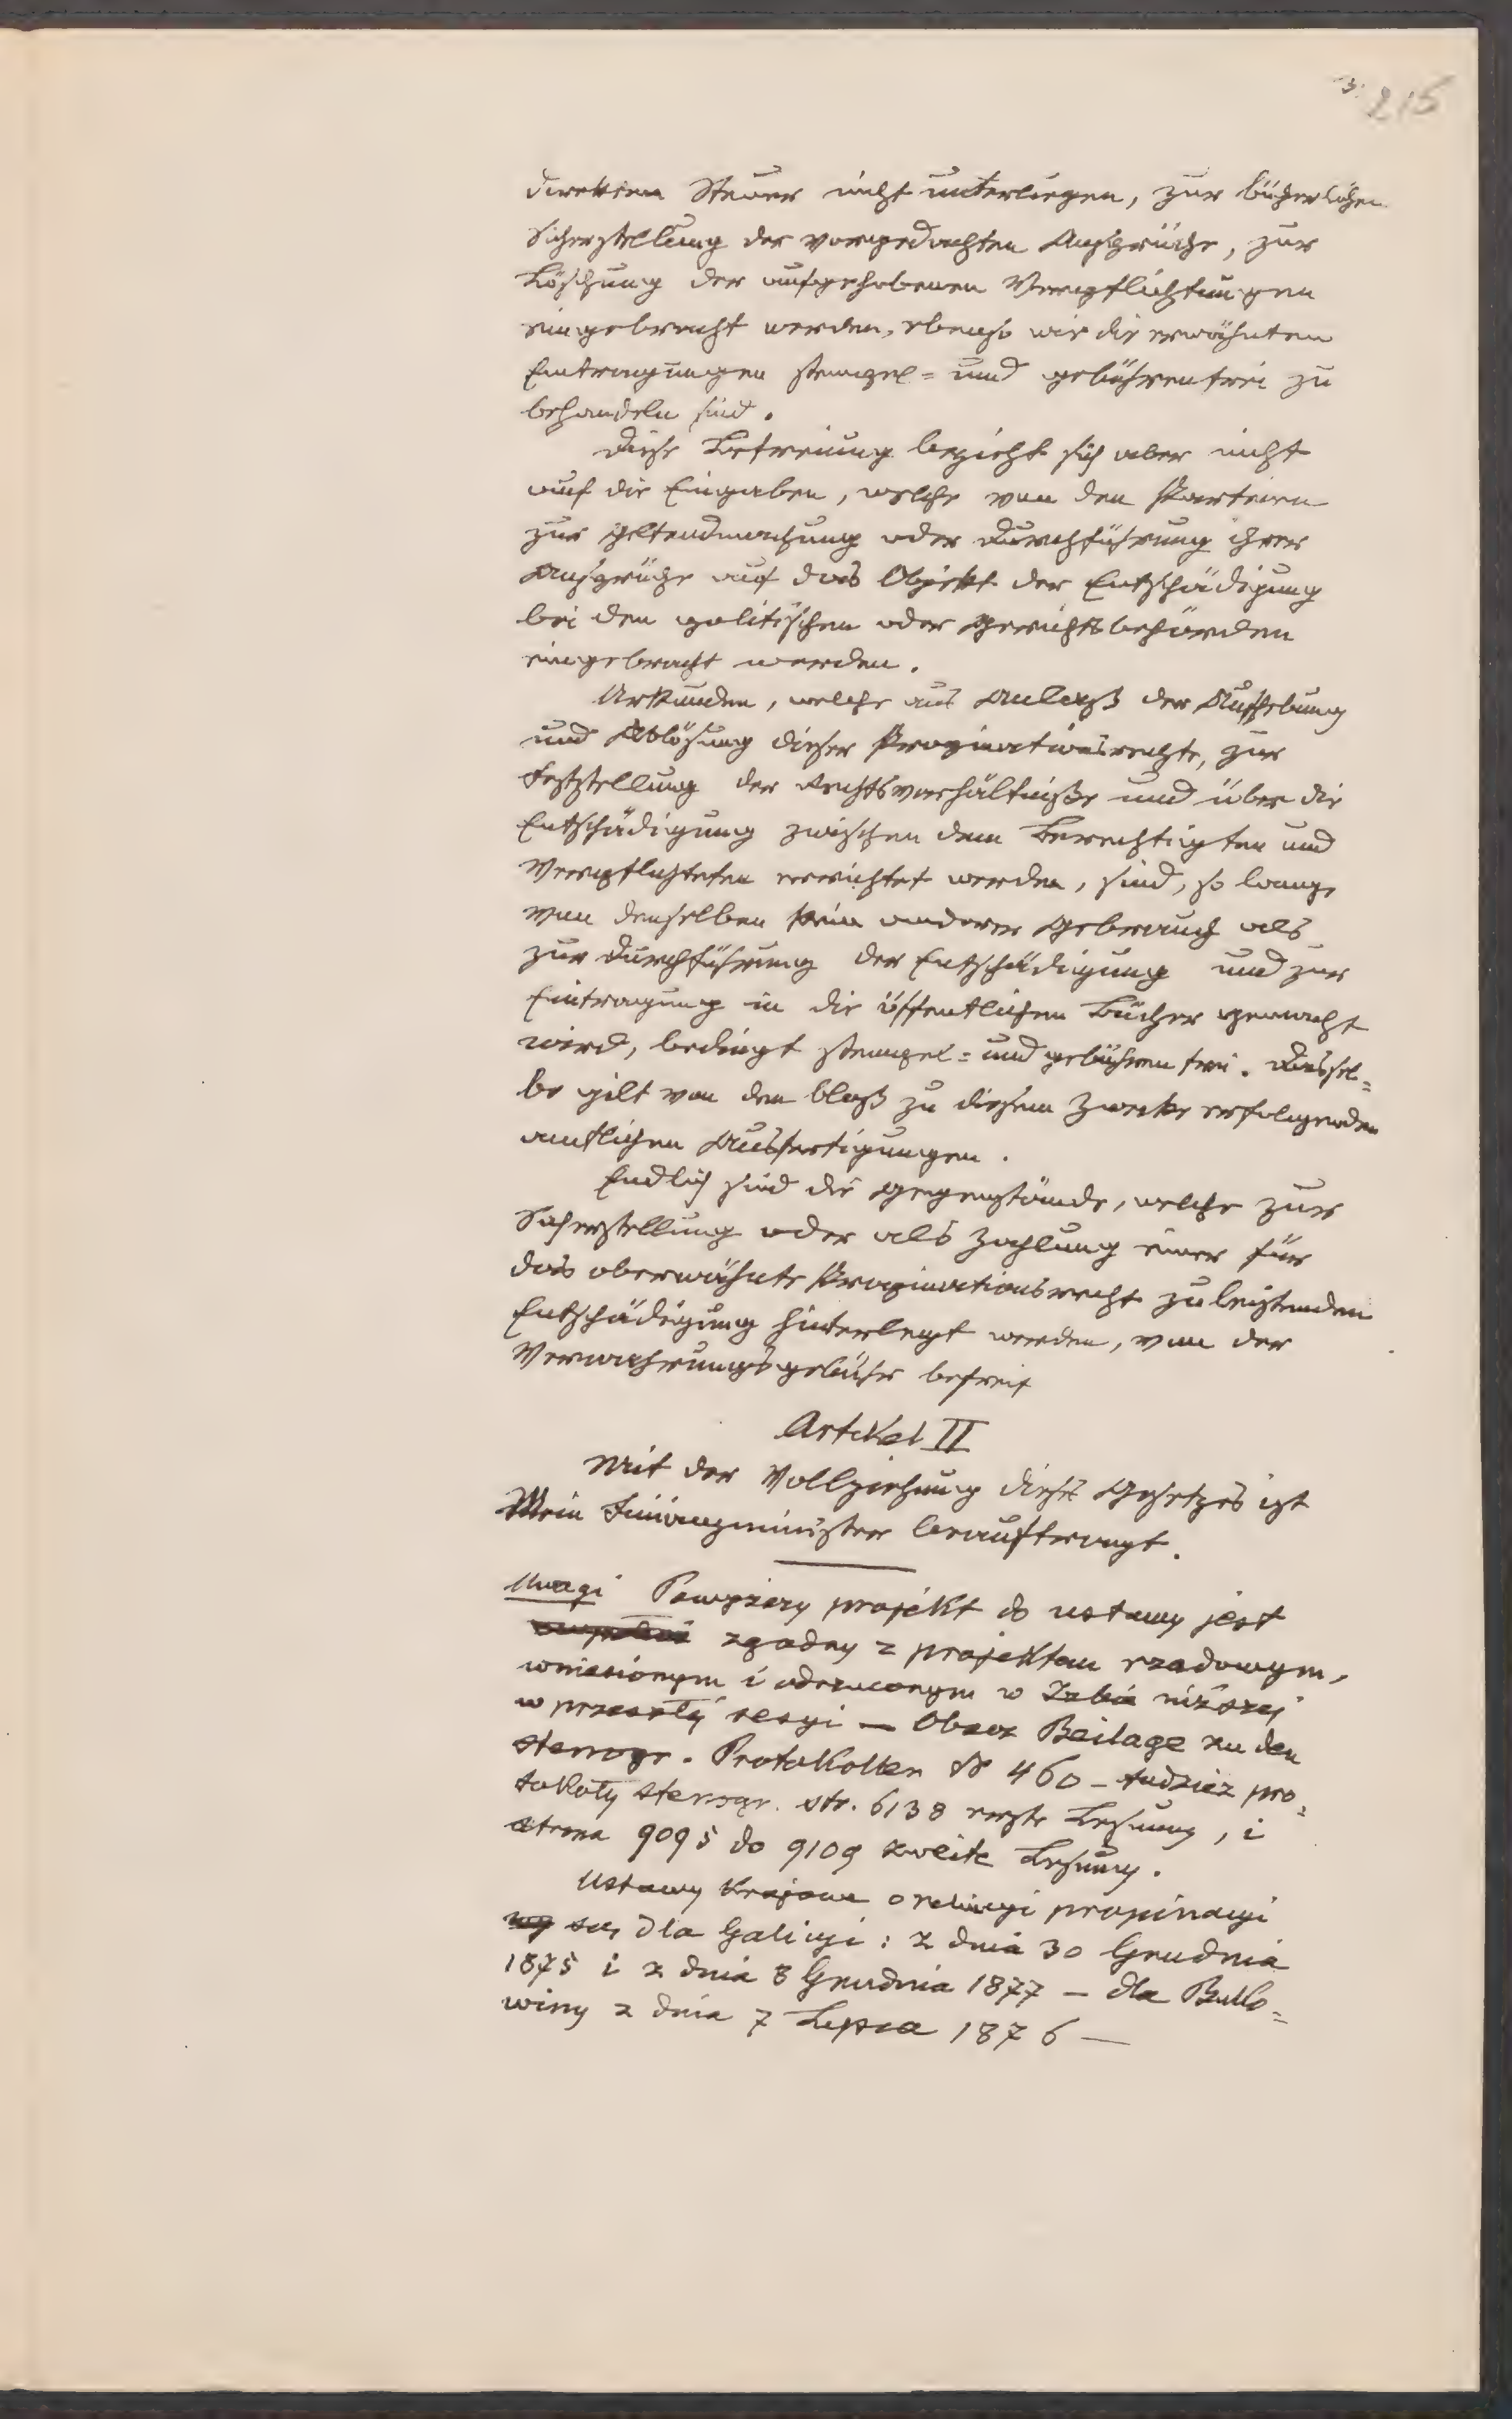 3. 215
direkten Steuer nicht unterliegen, zur bücherlichen
Sicherstellung der vorgedachten Ansprüche, zur
Löschung der aufgehobenen Verpflichtungen
eingebracht werden, ebenso wie die erwähnten
Eintragungen stempel= und gebührenfrei zu
behandeln sind.
Diese Befreiung bezieht sich aber nicht
auf die Eingaben, welche von den Parteien
zur Geltendmachung oder Durchführung ihrer
Ansprüche auf das Objekt der Entschädigung
bei den politischen oder Gerichtsbehörden
eingebracht werden.
Urkunden, welche aus Anlaß der Aufhebung
und Ablösung dieser Propinationsrechte, zur
Feststellung der Rechtsverhältniße und über die
Entschädigung zwischen dem Berechtigten und
Verpflichteten errichtet werden, sind, so lange
von denselben kein anderer Gebrauch als
zur Durchführung der Entschädigung und zur
Eintragung in die öffentlichen Bücher gemacht
wird, bedingt stempel= und gebührenfrei. Dassel=
be gilt von den bloß zu diesem Zwecke erfolgenden
amtlichen Ausfertigungen.
Endlich sind die Gegenstände, welche zur
Sicherstellung oder als Zahlung einer für
das oberwähnte Propinationsrecht zu leistenden
Entschädigung hinterlegt werden, von der
Verwahrungsgebühr befreit
Artikel II
Mit der Vollziehung dieses Gesetzes ist
Mein Finanzminister beauftragt.
Uwagi Powyższy projekt do ustawy jest
zgodny z projektem rządowym,
wniesionym i odrzuconym w Izbie niższej
w przeszłej sesyi — Obacz Beilage zu den
stenogr. Protokollen № 460 – tudzież pro=
tokoły stenogr. str. 6138 erste Lesung, i
strona 9095 do 9109 zweite Lesung.
Ustawy krajowe o propinacyi
są, dla Galicyi: z dnia 30 Grudnia
1875 i z dnia 8 Grudnia 1877 — dla Buko=
winy z dnia 7 Lipca 1876 —